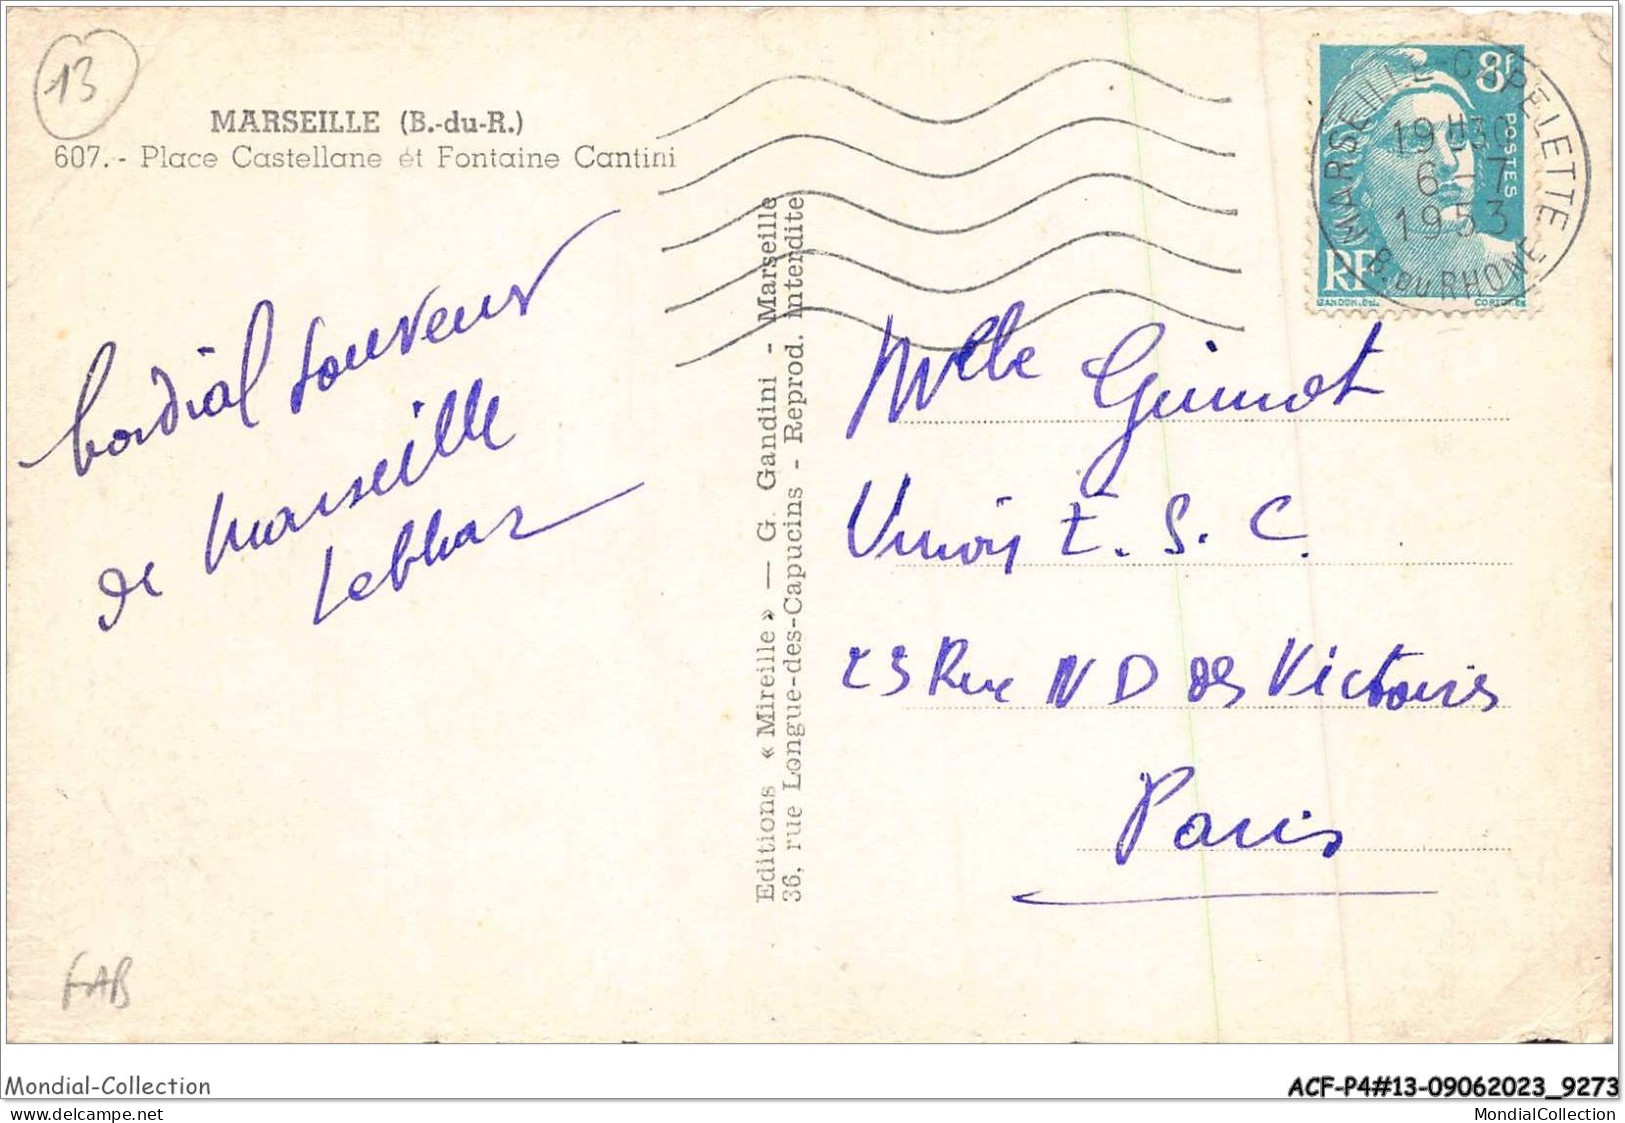 13
MARSEILLE (B.-du-R.)
607. - Place Castellane et Fontaine Cantini
Cordial souvenir
de Marseille
Lebhar
FAB
Editions « Mireille » — G. Gandini - Marseille
36, rue Longue-des-Capucins - Reprod. Interdite
8f
POSTES
RF
GANDON
MARSEILLE-CAPELETTE
19H30
6-7
1953
B. DU RHONE
Melle Guimot
Union E. S. C.
23 Rue N D des Victoires
Paris
Mondial-Collection
ACF-P4#13-09062023_9273
delcampe.net
MondialCollection